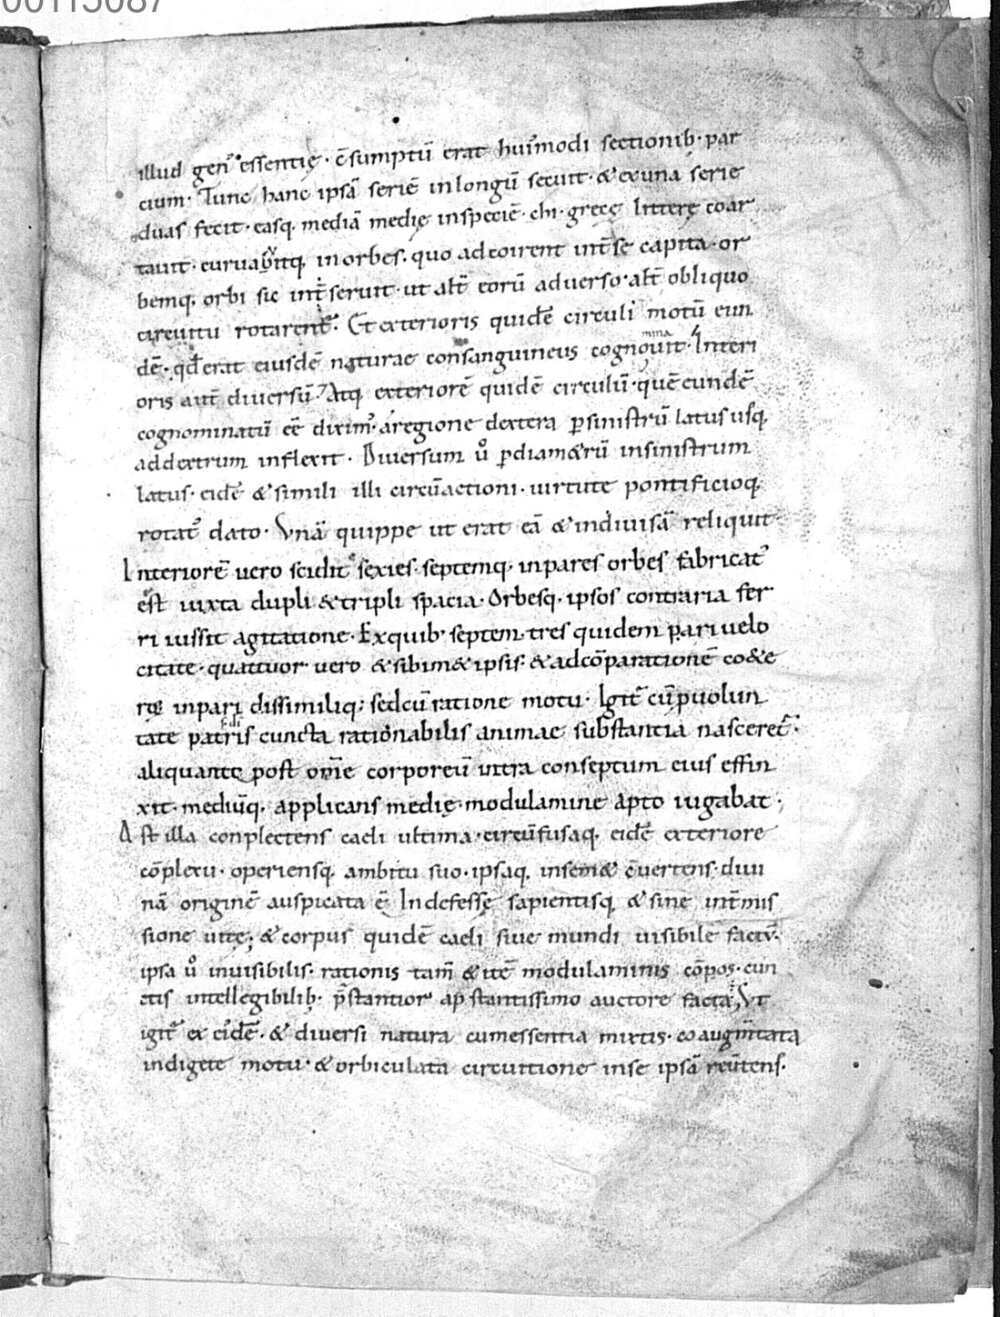 00115087
illud gen᷒ essentię · c̄sumptū erat hui᷒modi sectionib; · par
cium · Tunc hanc ipsā seriē in longū secuit · & ex una serie
duas fecit · easq; mediā medię in speciē · chi · grecę litterę coar
tauit · curuauitq; in orbes · quo ad coirent int̄ se capita · or
bemq; orbi sic int̄seruit · ut alt̄ eorū aduerso · alt̄ obliquo
circuitu rotarent᷒ · Et exterioris quidē circuli motū eun
dē · qđ erat eiusdē naturae consanguineus cognouit · Interi
oris aut̄ diuersū · Atq; exteriorē quidē circulū · quē eundē
cognominatū eē dixim᷒ · a regione dextera p̱ sinistrū latus usq;
ad dextrum inflexit · Diuersum ů p̱ diam&rū in sinistrum
latus · eidē & simili illi circūactioni · uirtute pontificioq;
rotat᷒ dato · Vnā quippe ut erat eā & indiuisā reliquit
Interiorē uero scidit sexies · septemq; inpares orbes fabricat᷒
est iuxta dupli & tripli spacia · Orbesq; ipsos contraria fer
ri iussit agitatione · Ex quib; septem · tres quidem pari uelo
citate · quattuor uero & sibim& ipsis · & ad cōparationē co&e
rę inpari dissimiliq; sed cū ratione motu · Igit̄ cū p̱ uolun
tate patris cuncta rationabilis animae substantia nasceret᷒ ·
aliquante post om̄e corporeū intra conseptum eius effin
xit · mediūq; applicans medię · modulamine apto iugabat ;
Ast illa conplectens caeli ultima · circūfusaq; eidē exteriore
cōplexu · operiensq; ambitu suo · ipsaq; in sem& c̄uertens · diui
nā originē auspicata ē · Indefessę sapientisq; & sine int̄mis
sione uitę ; & corpus quidē caeli siue mundi uisibile factū ·
ipsa ů inuisibilis · rationis tam̄ & itē modulaminis cōpos · cun
ctis intellegibilib; p̄stantior a p̄stantissimo auctore facta · Vt
igit᷒ ex eidē · & diuersi natura cum essentia mixtis · coaugm̄tata
indigete motu · & orbiculata circuitione in se ipsā reūtens ·